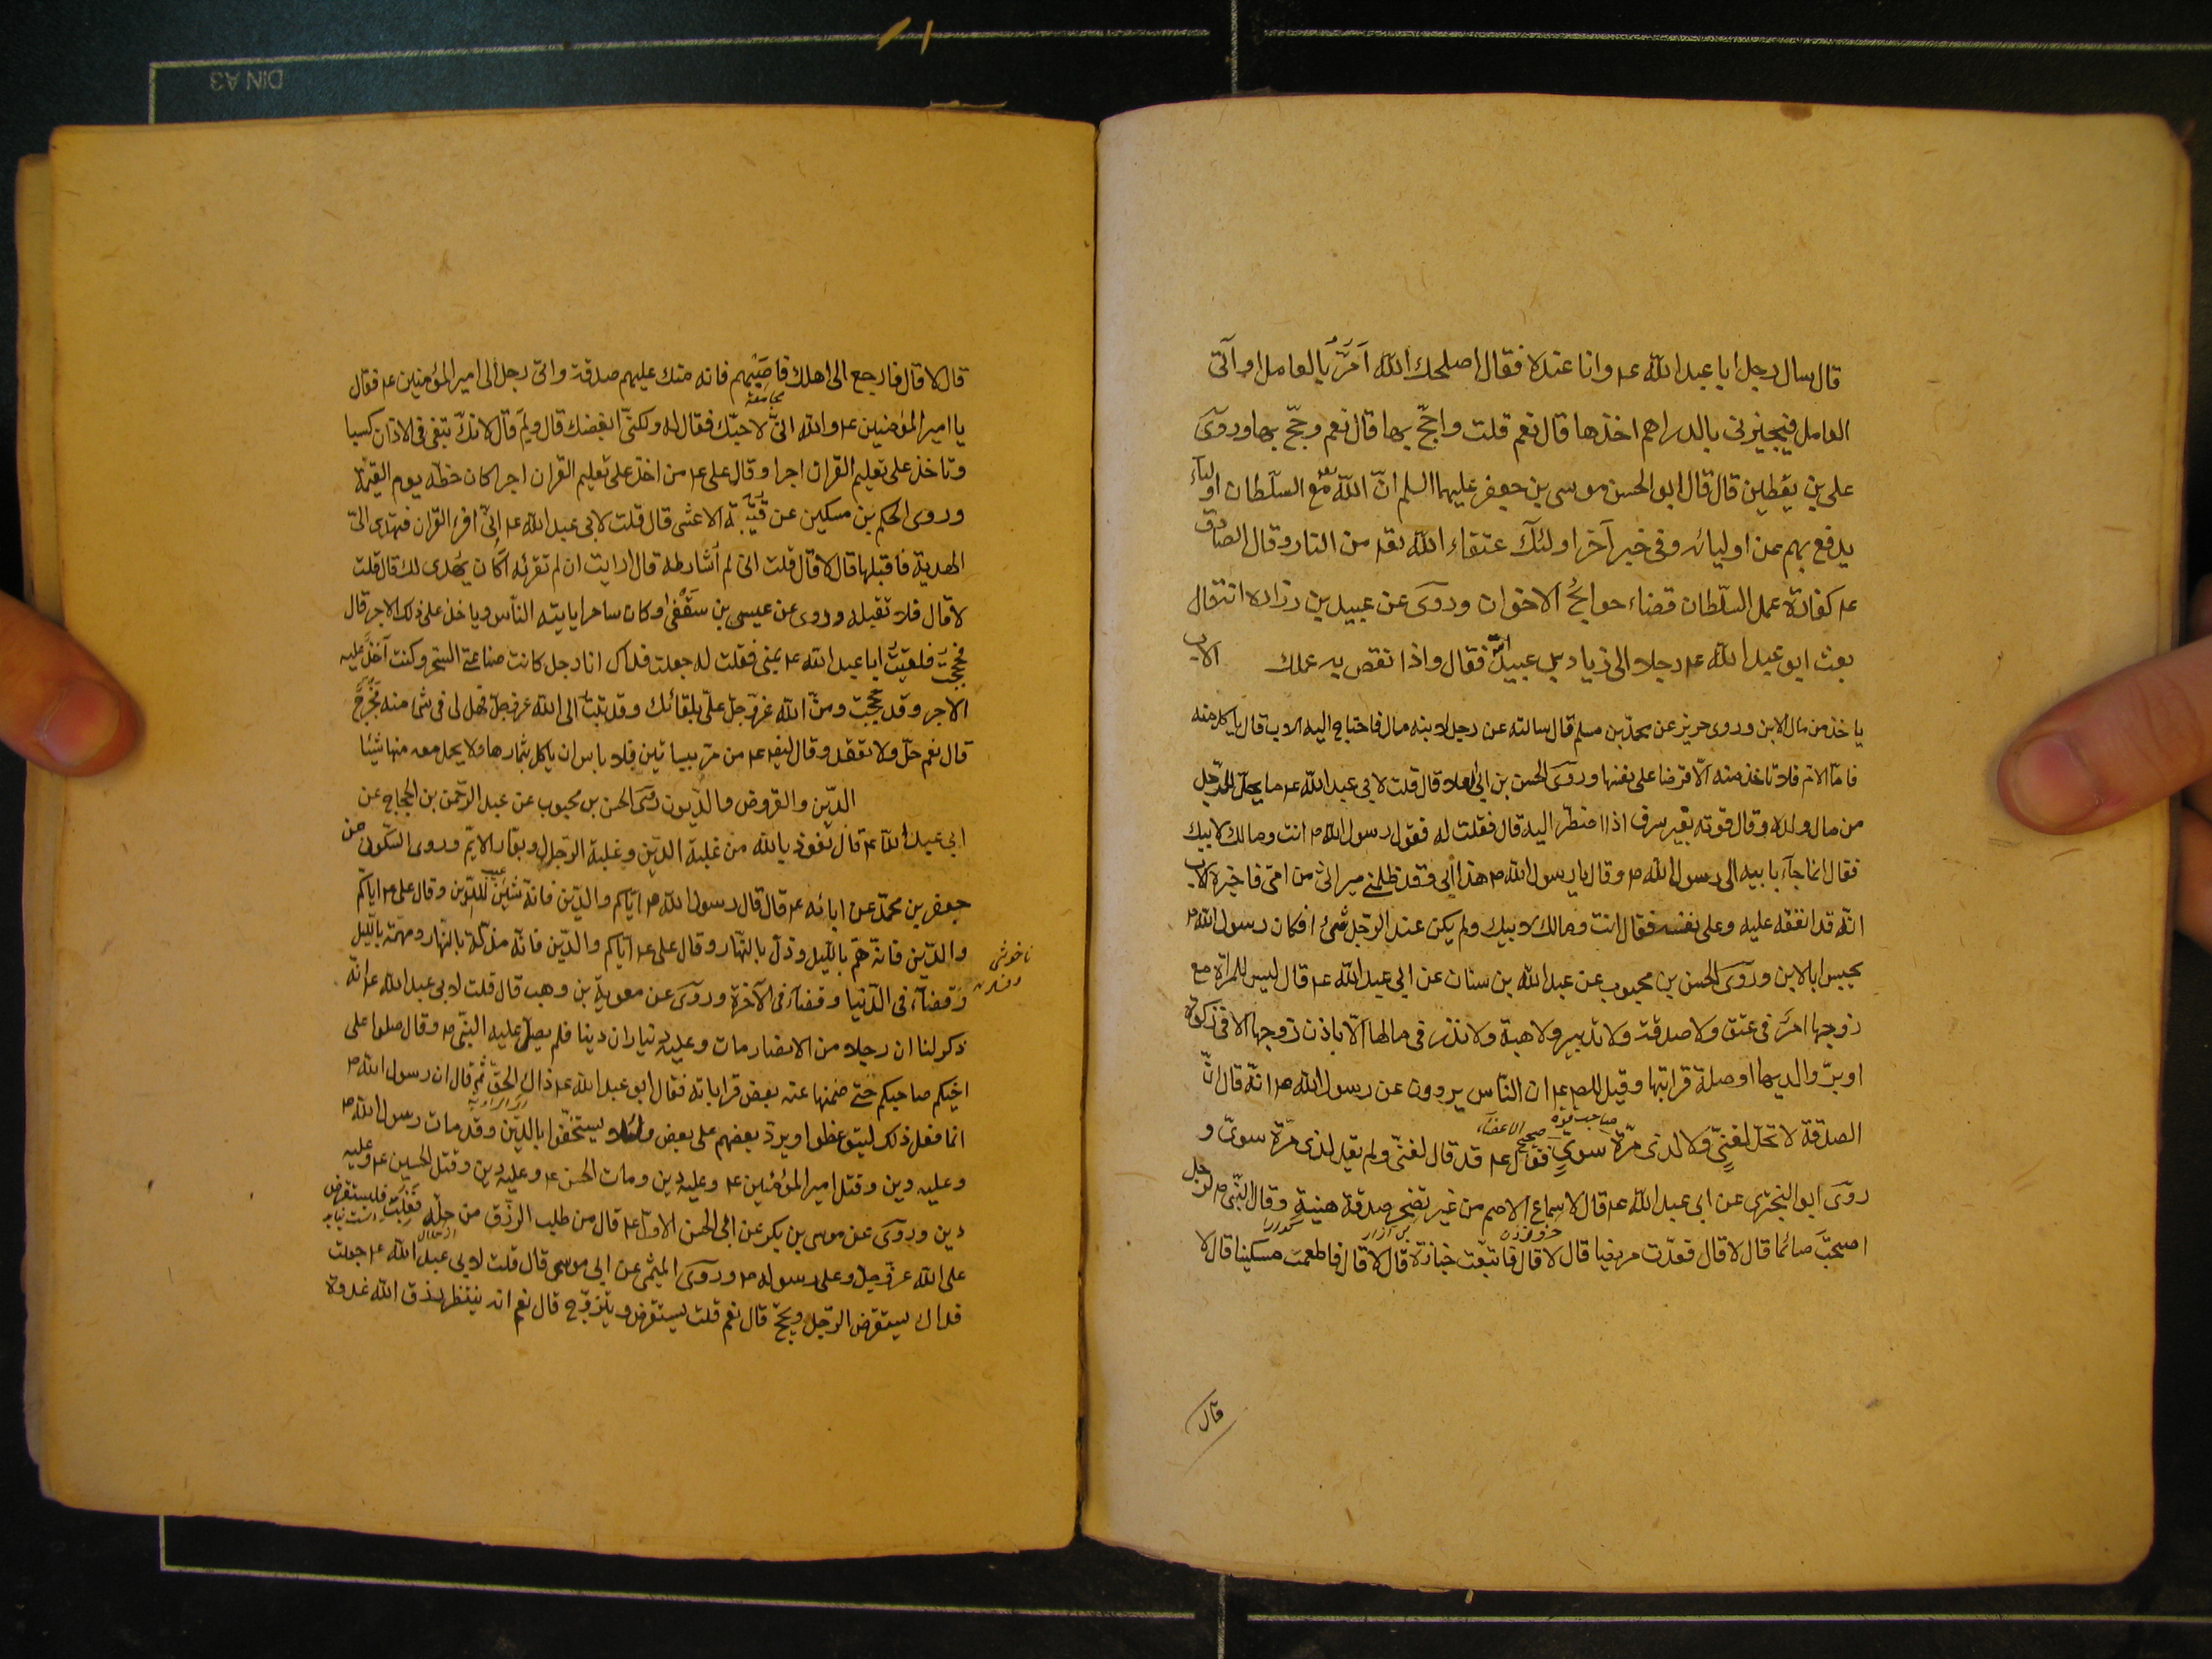 قال سال رجل ابا عبد الله عـ وانا عنده فقال اصلحك الله اَمُرُّ بالعامل او آتى
العامل فيجيزنى بالدراهم اخذها قال نعم قلت واحجّ بها قال نعم وحجّ بها وروَى
على بن يقطين قال قال ابو الحسن موسى بن جعفر عليهما السلم انّ الله تعـ مع السّلطان اولياء
يدفع بهم عن اوليائه وفى خبر آخر اولئك عتقاء الله تعـ من النار وقال الصّادق
عـ كفارة عمل السّلطان قضاء حوائج الاخوان وروَى عن عبيد بن زرارة انه قال
بعث ابو عبد الله عـ رجلا الى زياد بن عبيد الله فقال واذا نقص به عملك الاب
ياخذ من مال الابن وروى حريز عن محمّد بن مسلم قال سالته عن رجل لابنه مال فاحتاج اليه الاب قال ياكل منه
فامّا الام فلا تاخذ منه الّا قرضا على نفسها وروَى الحسن بن ابى العلا قال قلت لابى عبد الله عـ ما يحلّ للرّجل
من مال ولده وقال قوته بغير سرف اذا اضطر اليه قال فقلت له فقول رسول الله صـ انت ومالك لابيك
فقال انما جآء بابيه الى رسول الله صـ وقال يا رسول الله صـ هذا ابى وقد ظلمنى ميراثى من امّى فاخبره الاب
انّه قد انفقه عليه وعلى نفسه فقال انت ومالك لابيك ولم يكن عند الرّجل شئ افكان رسول الله صـ
يحبس ابا لابن وروَى الحسن بن محبوب عن عبد الله بن سنان عن ابى عبد الله عـ قال ليس للمراة مع
زوجها امرٌ فى عتق ولا صدقة ولا تدبير ولا هبة ولا نذر فى مالها الّا باذن زوجها الا فى زكوة
او برّ والديها او صلة قرابتها وقيل للصـ عـ ان النّاس يروون عن رسول الله صـ انّه قال انّ
صاحب قوة صحيح الاعضآء
الصدّقة لا تحلّ لغنىٍّ ولا لذى مرّة سوىّ فقال عـ قد قال لغنىّ ولم يقل لذى مرّة سوىّ و
روَى ابو البخترى عن ابى عبد الله عـ قال لاسماع الاصم من غير تضجر صدقة هنيئة وقال النّبى صـ لرجل
اصبحتَ صائما قال لا قال فعدّت مريضا قال لا قال فاتبعت جنازة قال لا قال فاطعمت مسكينا قال لا
قال
قال لا قال فارجع الى اهلك فاصَبْهم فانه منك عليهم صدقة واتى رجل الى امير المؤمنين عـ فقال
مجامعة
يا امير المؤمنين عـ والله انّى لاحبّك فقال له ولكنّى ابغضك قال ولِمَ قال لانّك تبغى فى الاذان كسبا
وتاخذ على تعليم القران اجرا وقال على عـ من اخذ على تعليم القران اجرا كان حظّه يوم القيمة
وروى الحكم بن مسكين عن قتيبة الاعشى قال قلت لابى عبد الله عـ انّى اقرء القران فتهدى الىّ
الهدية فاقبلها قال لا قال قلت انى لم اشارطه قال ارايت ان لم تقرئه اكان يهدى لك قال قلت
لا قال فلا تقبله وروى عن عيسى بن سَقفى وكان ساحرا ياتيه النّاس وياخذ على ذلك الاجر قال
فحججت فلقيتُ ابا عبد الله عـ بمنى فقلت له جعلت فداك انا رجل كانت صناعتى السّحر وكنت آخذ عليه
الاجر وقد حججت ومنّ الله عزّوجلّ علىّ بلقائك وقد تبتُ الى الله عزوجل فهل لى فى شئ منه مَخْرج
قال نعم حلّ ولا تعقد وقال ليفـ عـ من مرّ ببساتين فلا باس ان ياكل ثمارها ولا يحمل معه منها شيئا
الدّين والقروض والدّيون روى الحسن بن محبوب عن عبد الرّحمن بن الحجاج عن
ابى عبد الله عـ قال تعوّذ بالله من غلبة الدّين وغلبة الرّجال وبوار الايّم وروى السّكونى عن
جعفر بن محمّد عن ابائه عـ قال قال رسول الله صـ ايّاكم والدّين فانّه شَين للدّين وقال على عـ ايّاكم
والدّين فانّه همّ بالّيل وذلّ بالنّهار وقال على عـ ايّاكم والدّين فانّه مذلّة بالنّهار ومهمّة بالّليل
ناخوشى
وقضآء فى الدّنيا وقضآء فى الآخرة وروَى عن معوية بن وهب قال قلت لابى عبد الله عـ انّه
ذكر لنا ان رجلا من الانصار مات وعليه ديناران دينا فلم يصلّ عليه النّبى صـ وقال صلوا على
اخيكم صاحبكم حتّى ضمنها عنه بعض قراباته فقال ابو عبد الله عـ ذاك الحقّ ثم قال ان رسول الله صـ
انّما فعل ذلك ليتّعظوا ويردّ بعضهم على بعض ولئلا يستخفّوا بالدّين وقد مات رسول الله صـ
وعليه دين وقتل امير المؤمنين عـ وعليه دين ومات الحسن عـ وعليه دين وقتل الحسين عـ وعليه
دين وروَى عن موسى بن بكر عن ابى الحسن الاول عـ قال من طلب الرّزق من حلّه فغلب فليستقرض
على الله عزّوجلّ وعلى رسوله صـ وروَى الميثمى عن ابى موسى قال قلت لابى عبد الله عـ جعلت
فداك يستقرض الرّجل ويحجّ قال نعم قلت يستقرض ويتزوّج قال نعم انه ينتظر رزق الله غدوة